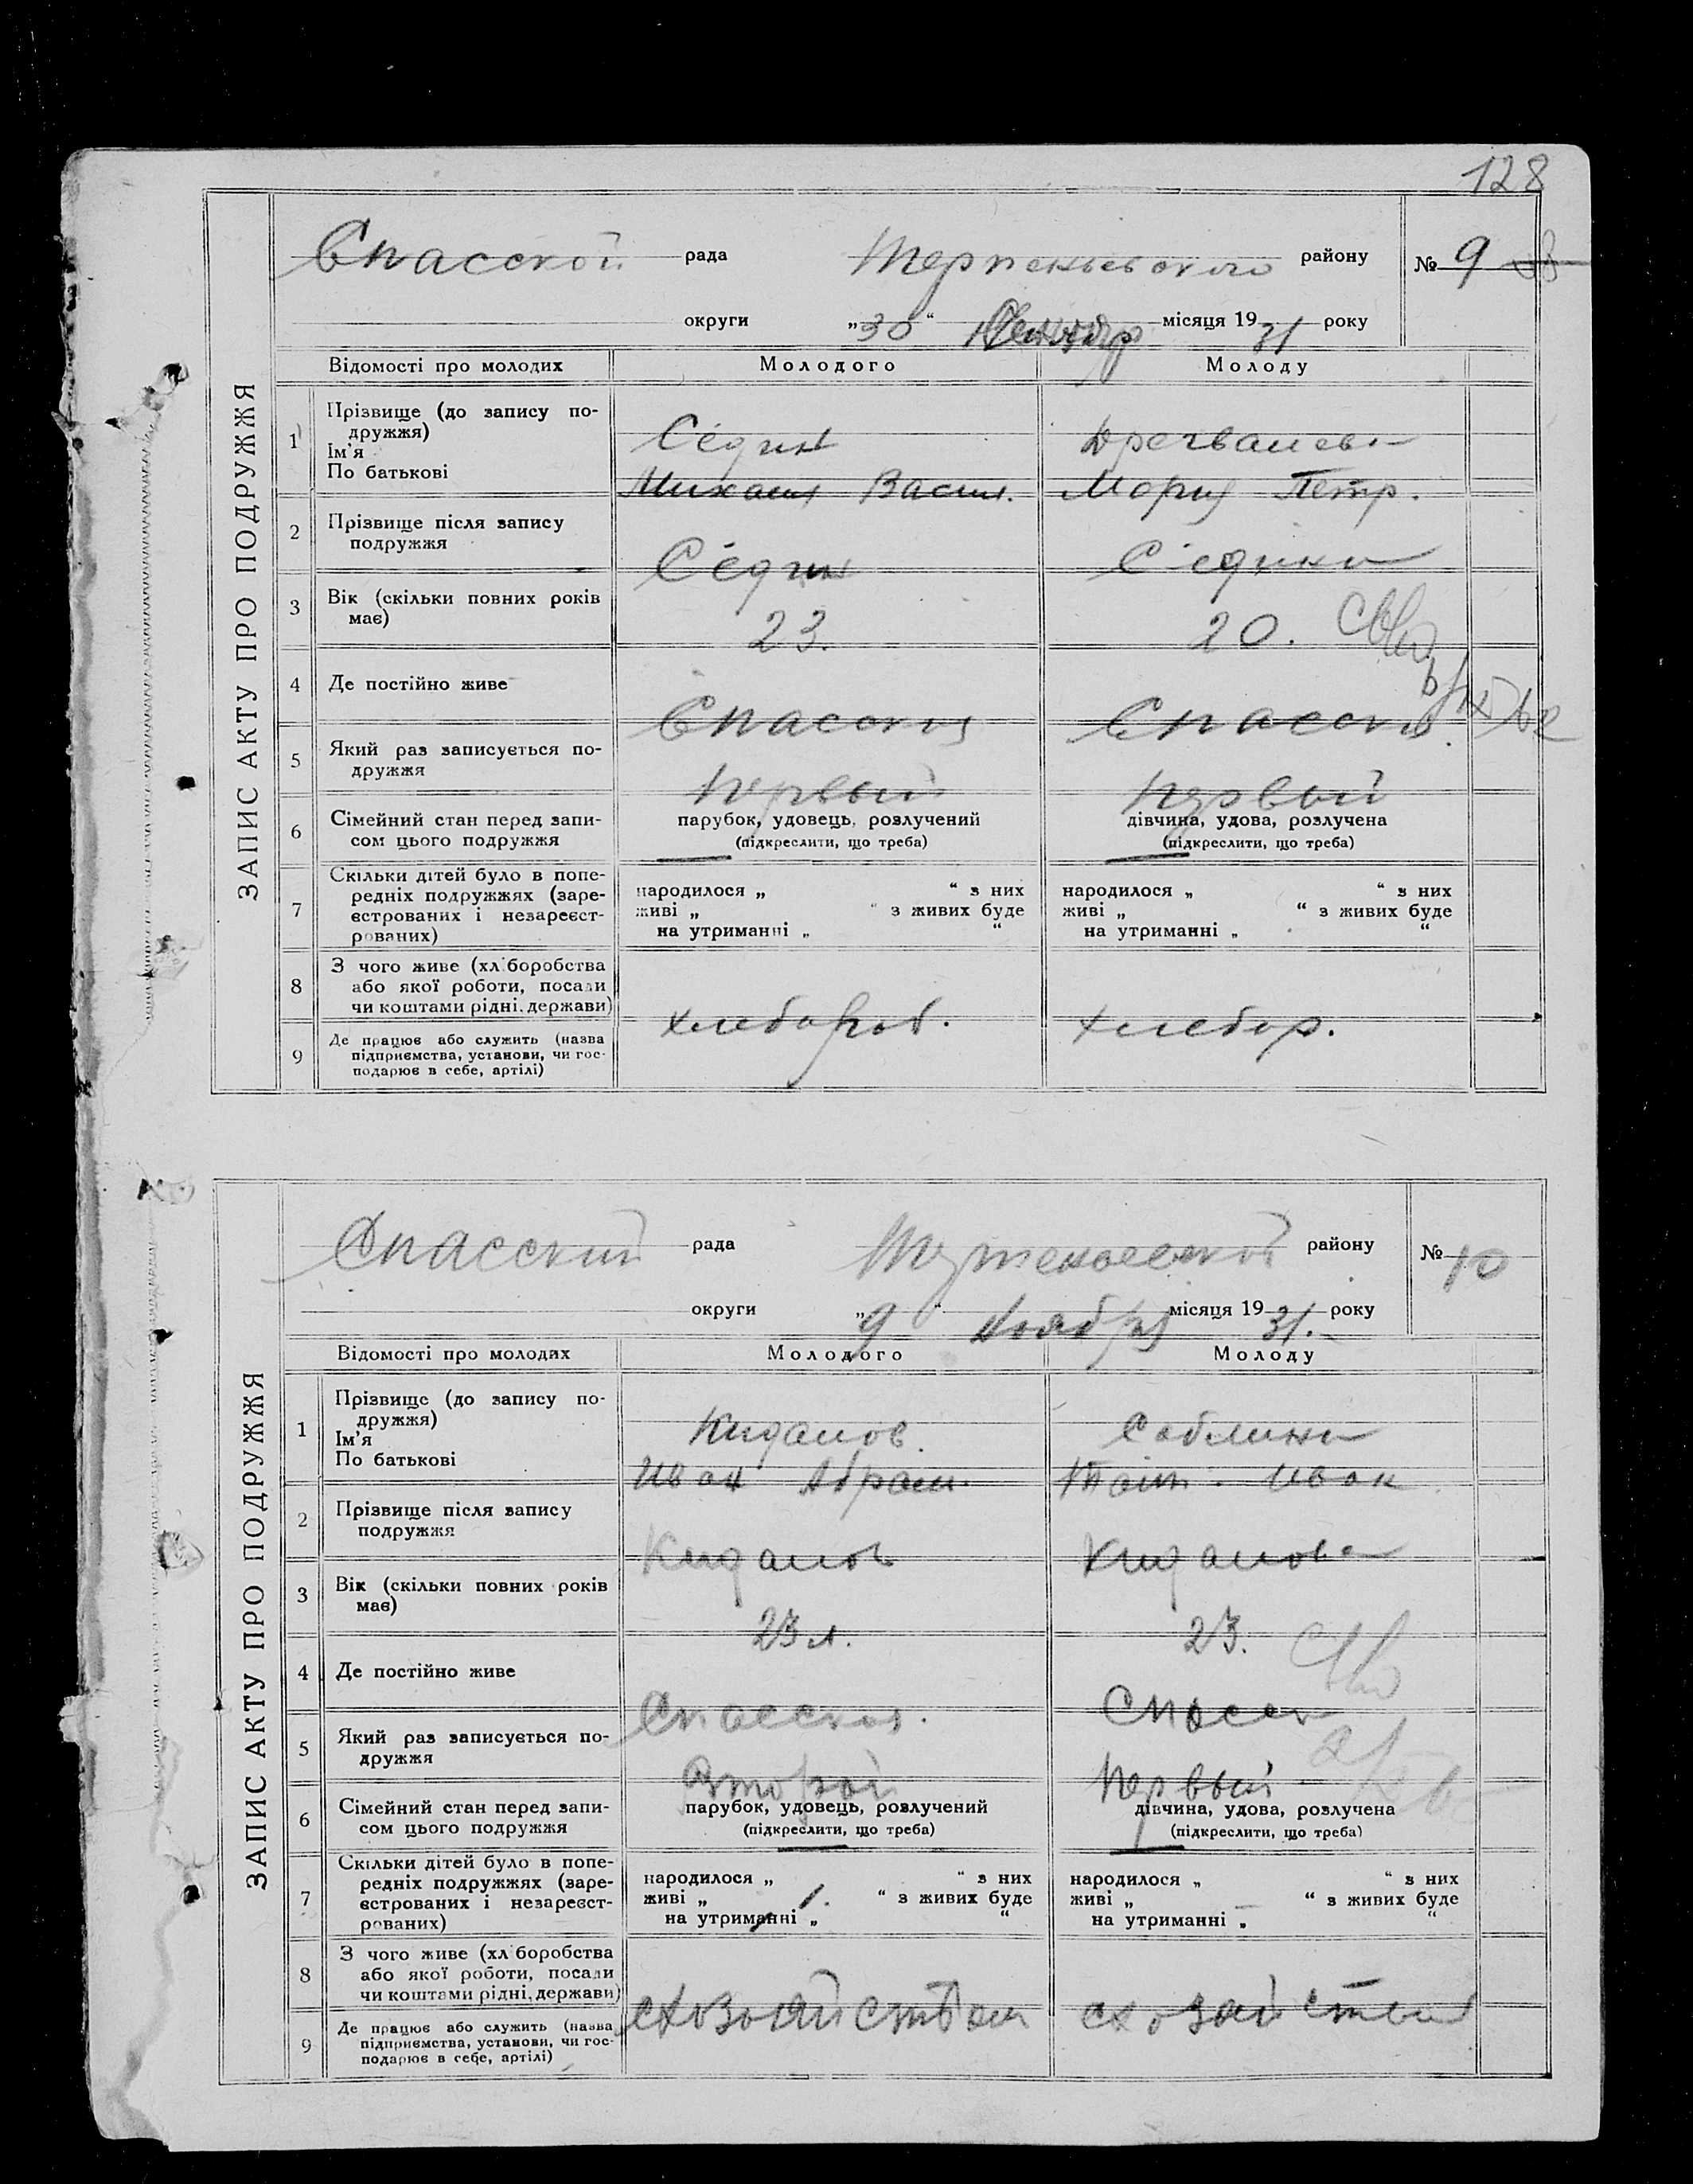 128
ЗАПИС АКТУ ПРО ПОДРУЖЖЯ
Спасской рада Терпеньевского району № 9
округи „30“ місяця 1931 року
Відомості про молодих Молодого Молоду
1 Прізвище (до запису по-
дружжя)
Ім'я
По батькові
Седин
Михаил Васил. Мария Петр.
2 Прізвище після запису
подружжя
Седин Седина
3 Вік (скільки повних років
має)
23. 20.
4 Де постійно живе
Спасския Спасския
5 Який раз записується по-
дружжя
Первый Первый
6 Сімейний стан перед запи-
сом цього подружжя
парубок, удовець, розлучений дівчина, удова, розлучена
(підкреслити, що треба) (підкреслити, що треба)
7 Скільки дітей було в попе-
редніх подружжях (заре-
єстрованих і незареєст-
рованих)
народилося „ “ з них народилося „ “ з них
живі „ “ з живих буде живі „ “ з живих буде
на утриманні „ “ на утриманні „ “
8 З чого живе (хліборобства
або якої роботи, посади
чи коштами рідні, держави)
хлебороб. хлебор.
9 Де працює або служить (назва
підприємства, установи, чи гос-
подарює в себе, артілі)
ЗАПИС АКТУ ПРО ПОДРУЖЖЯ
Спасский рада Терпеньевской району № 10
округи „9“ Ноября місяця 1931. року
Відомості про молодих Молодого Молоду
1 Прізвище (до запису по-
дружжя)
Ім'я
По батькові
Кидалов. Саблина
Иван Абрам. Иван
2 Прізвище після запису
подружжя
Кидалов Кидалова
3 Вік (скільки повних років
має)
23 л. 23.
4 Де постійно живе
Спасския. Спасск
5 Який раз записується по-
дружжя
Второй Первый
6 Сімейний стан перед запи-
сом цього подружжя
парубок, удовець, розлучений дівчина, удова, розлучена
(підкреслити, що треба) (підкреслити, що треба)
7 Скільки дітей було в попе-
редніх подружжях (заре-
єстрованих і незареєст-
рованих)
народилося „ “ з них народилося „ “ з них
живі „ 1. “ з живих буде живі „ — “ з живих буде
на утриманні „ “ на утриманні „ “
8 З чого живе (хліборобства
або якої роботи, посади
чи коштами рідні, держави)
9 Де працює або служить (назва
підприємства, установи, чи гос-
подарює в себе, артілі)